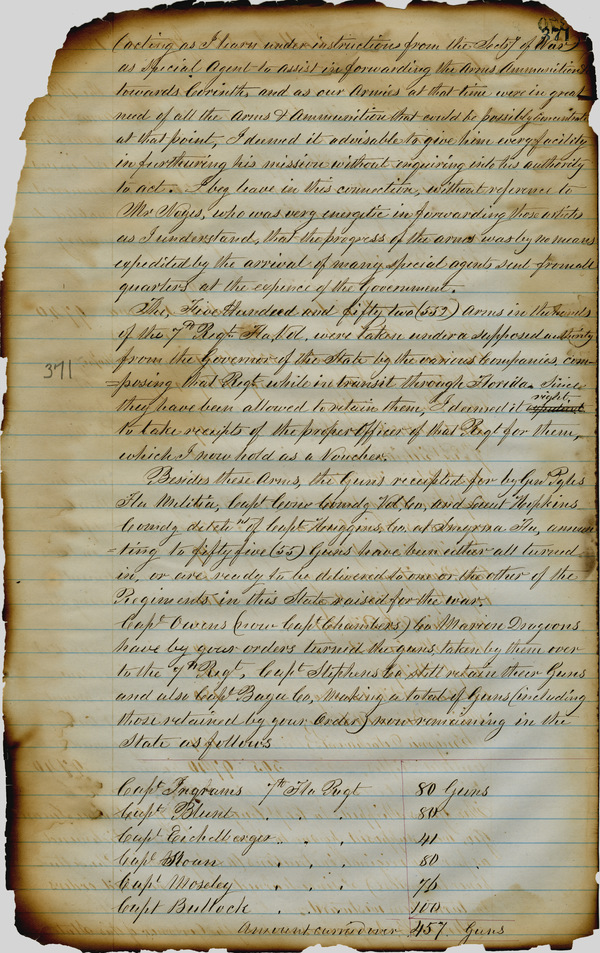 371
(acting as I learn under instructions from the Secty of War
as Special Agent to assist in forwarding the Arms Ammunition
towards Corinth, and as our Armies at that time were in great
need of all the Arms & Ammunition that could be possibly concentrated
at that point, I deemed it advisable to give him every facility
in furthuring his mission without enquiring into his authority
to act. I beg leave in this connection, without reference to
Mr Noyes, who was very energetic in forwarding those articles
as I understand, that the progress of the arms was by no means
expedited by the arrival of many special agents sent from all
quarters, at the expence of the Government.
The, Five Hundred and fifty two (552) Arms in the hands
of the 7th Regt. Fla. Vol. were taken under a supposed authority
371
from the Governor of the State by the various Companies, com-
=posing that Regt. while in transit through Florida. Since
right,
they have been allowed to retain them, I deemed it
to take receipts of the proper Officer of that Regt for them,
which I now hold as a Voucher.
Besides these Arms, the Guns receipted for by Gen Pyles
Fla Militia, Capt Cone Comdg Vol Co, and Lieut Hopkins
Comdg of Capt Huggins, Co. at Smyrna Fla, amoun
=ting to fifty five (55) Guns have been either all turned
in, or are ready to be delivered to one or the other of the
Regiments in this State raised for the war.
Capt Owens (now Capt Chambers) Co Marion Dragoons
have by your orders turned the guns taken by them over
to the 7th Regt, Capt Stephens Co still retain their Guns
and also Capt Co, Making a total of Guns (including
those retained by your Order) now remaining in the
State as follows
Capt Ingrams 7th Fla Regt 80 Guns
Capt Blunt . . . 80
Capt Eichelberger . . . 41
Capt Sloan . . . 80
Capt Moseley . . . 76
Capt Bullock . . . 100
Amount carried over 457 Guns